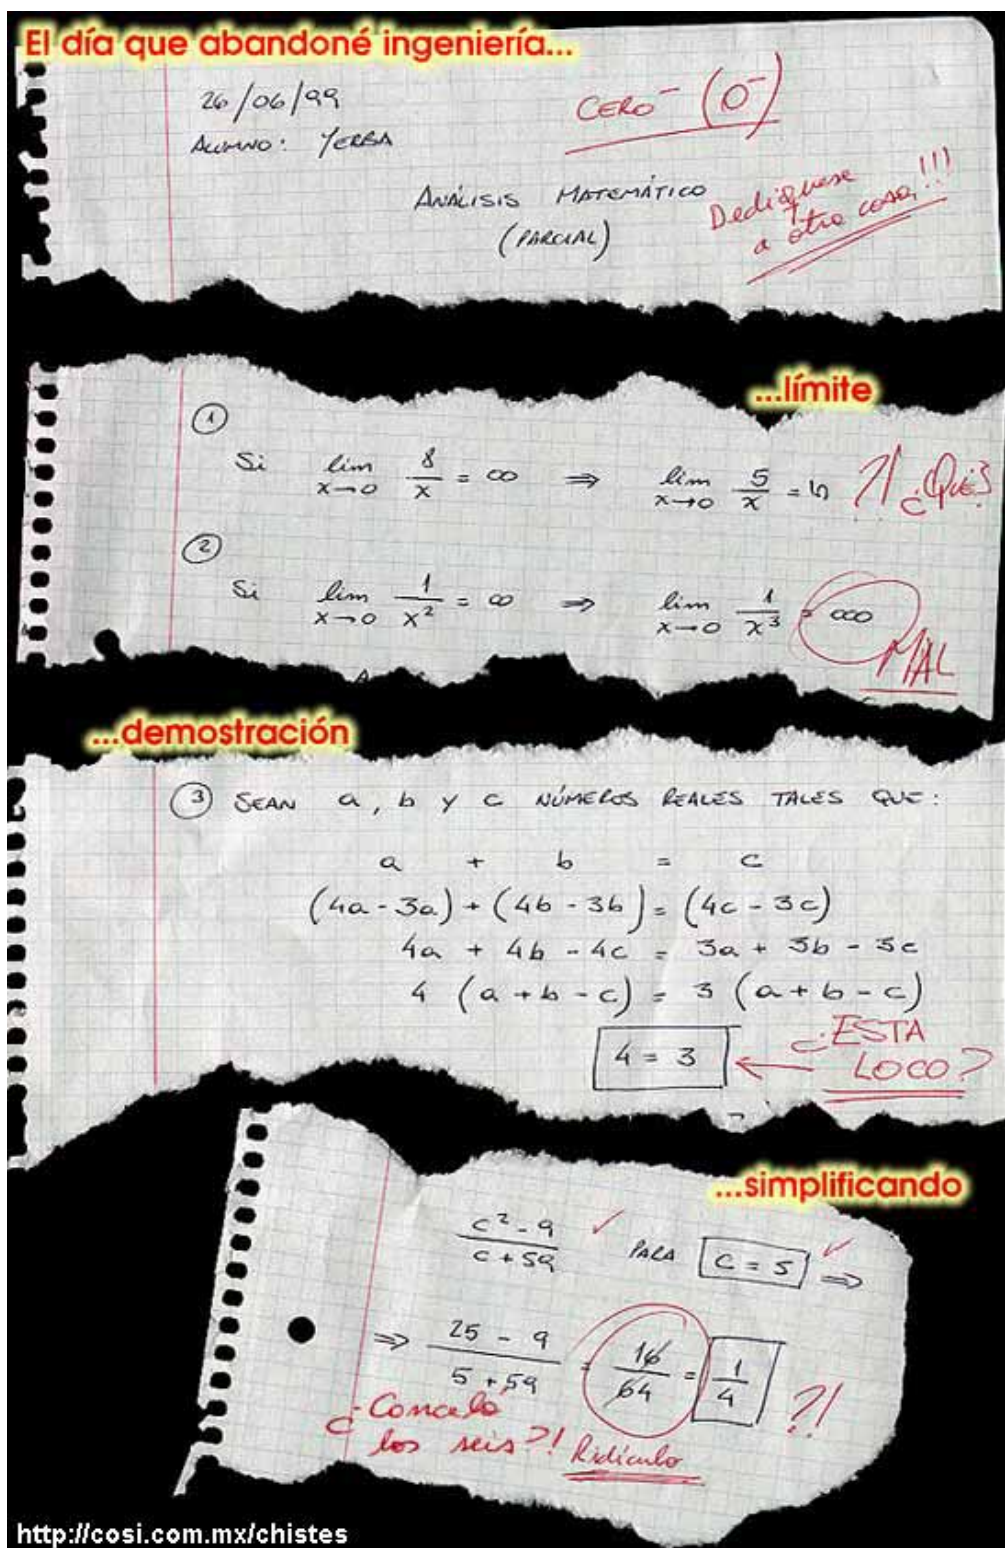 El día que abandoné ingeniería...
26/06/99
CERO⁻ (0⁻)
ALUMNO: YERBA
ANÁLISIS MATEMÁTICO
(PARCIAL)
Dediquese
a otra cosa!!!
...límite
①
Si lim x→0 8/x = ∞ ⇒ lim x→0 5/x = ᔕ ?! ¿Qué?
②
Si lim x→0 1/x² = ∞ ⇒ lim x→0 1/x³ = ∞
MAL
...demostración
③ SEAN a, b Y c NÚMEROS REALES TALES QUE:
a + b = c
(4a - 3a) + (4b - 3b) = (4c - 3c)
4a + 4b - 4c = 3a + 3b - 3c
4 (a + b - c) = 3 (a + b - c)
4 = 3
¿ESTA
LOCO?
...simplificando
c² - 9 / c + 59 ✓ PARA c = 5 ✓ ⇒
⇒ 25 - 9 / 5 + 59 = 16/64 = 1/4 ?!
¿Canceló
los seis?! Ridículo
http://cosi.com.mx/chistes